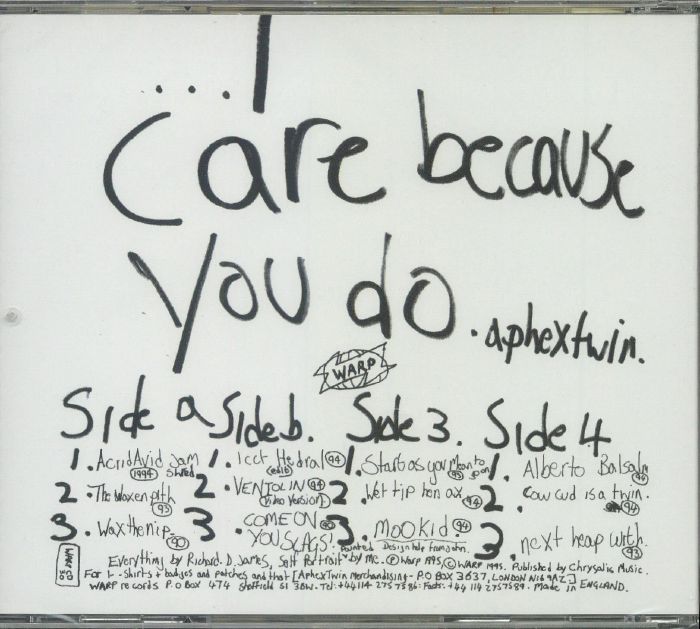 ....I
Care because
you do.
.aphextwin.
WARP
Side a
1. AcridAvid Jam Shred (1994)
2. The Waxen pth (93)
3. Wax the nip (90)
Side b.
1. Icct Hedral (94) (edit)
2. VENTOLIN (94) (Video Version)
3. COME ON YOU SLAGS!
Side 3.
1. Start as you Mean to go on (93)
2. Wet tip hen ax (94)
3. MOOKid. (94)
Side 4
1. Alberto Balsalm (94)
2. Cow cud is a twin. (94)
3. next heap with. (93)
Painted Design help from John.
WARP CD 30
Everything by Richard. D. James, Self Portrait by Me. ℗ Warp 1995, © WARP 1995. Published by Chrysalis Music.
For t-Shirts & badges and patches and that [Aphex Twin Merchandising - P.O BOX 3637, LONDON N16 9AZ] Made in ENGLAND.
WARP records P.O BOX 474 Sheffield S1 3BW. Tel: +44114 2757586. Facts: +44 114 2757589.